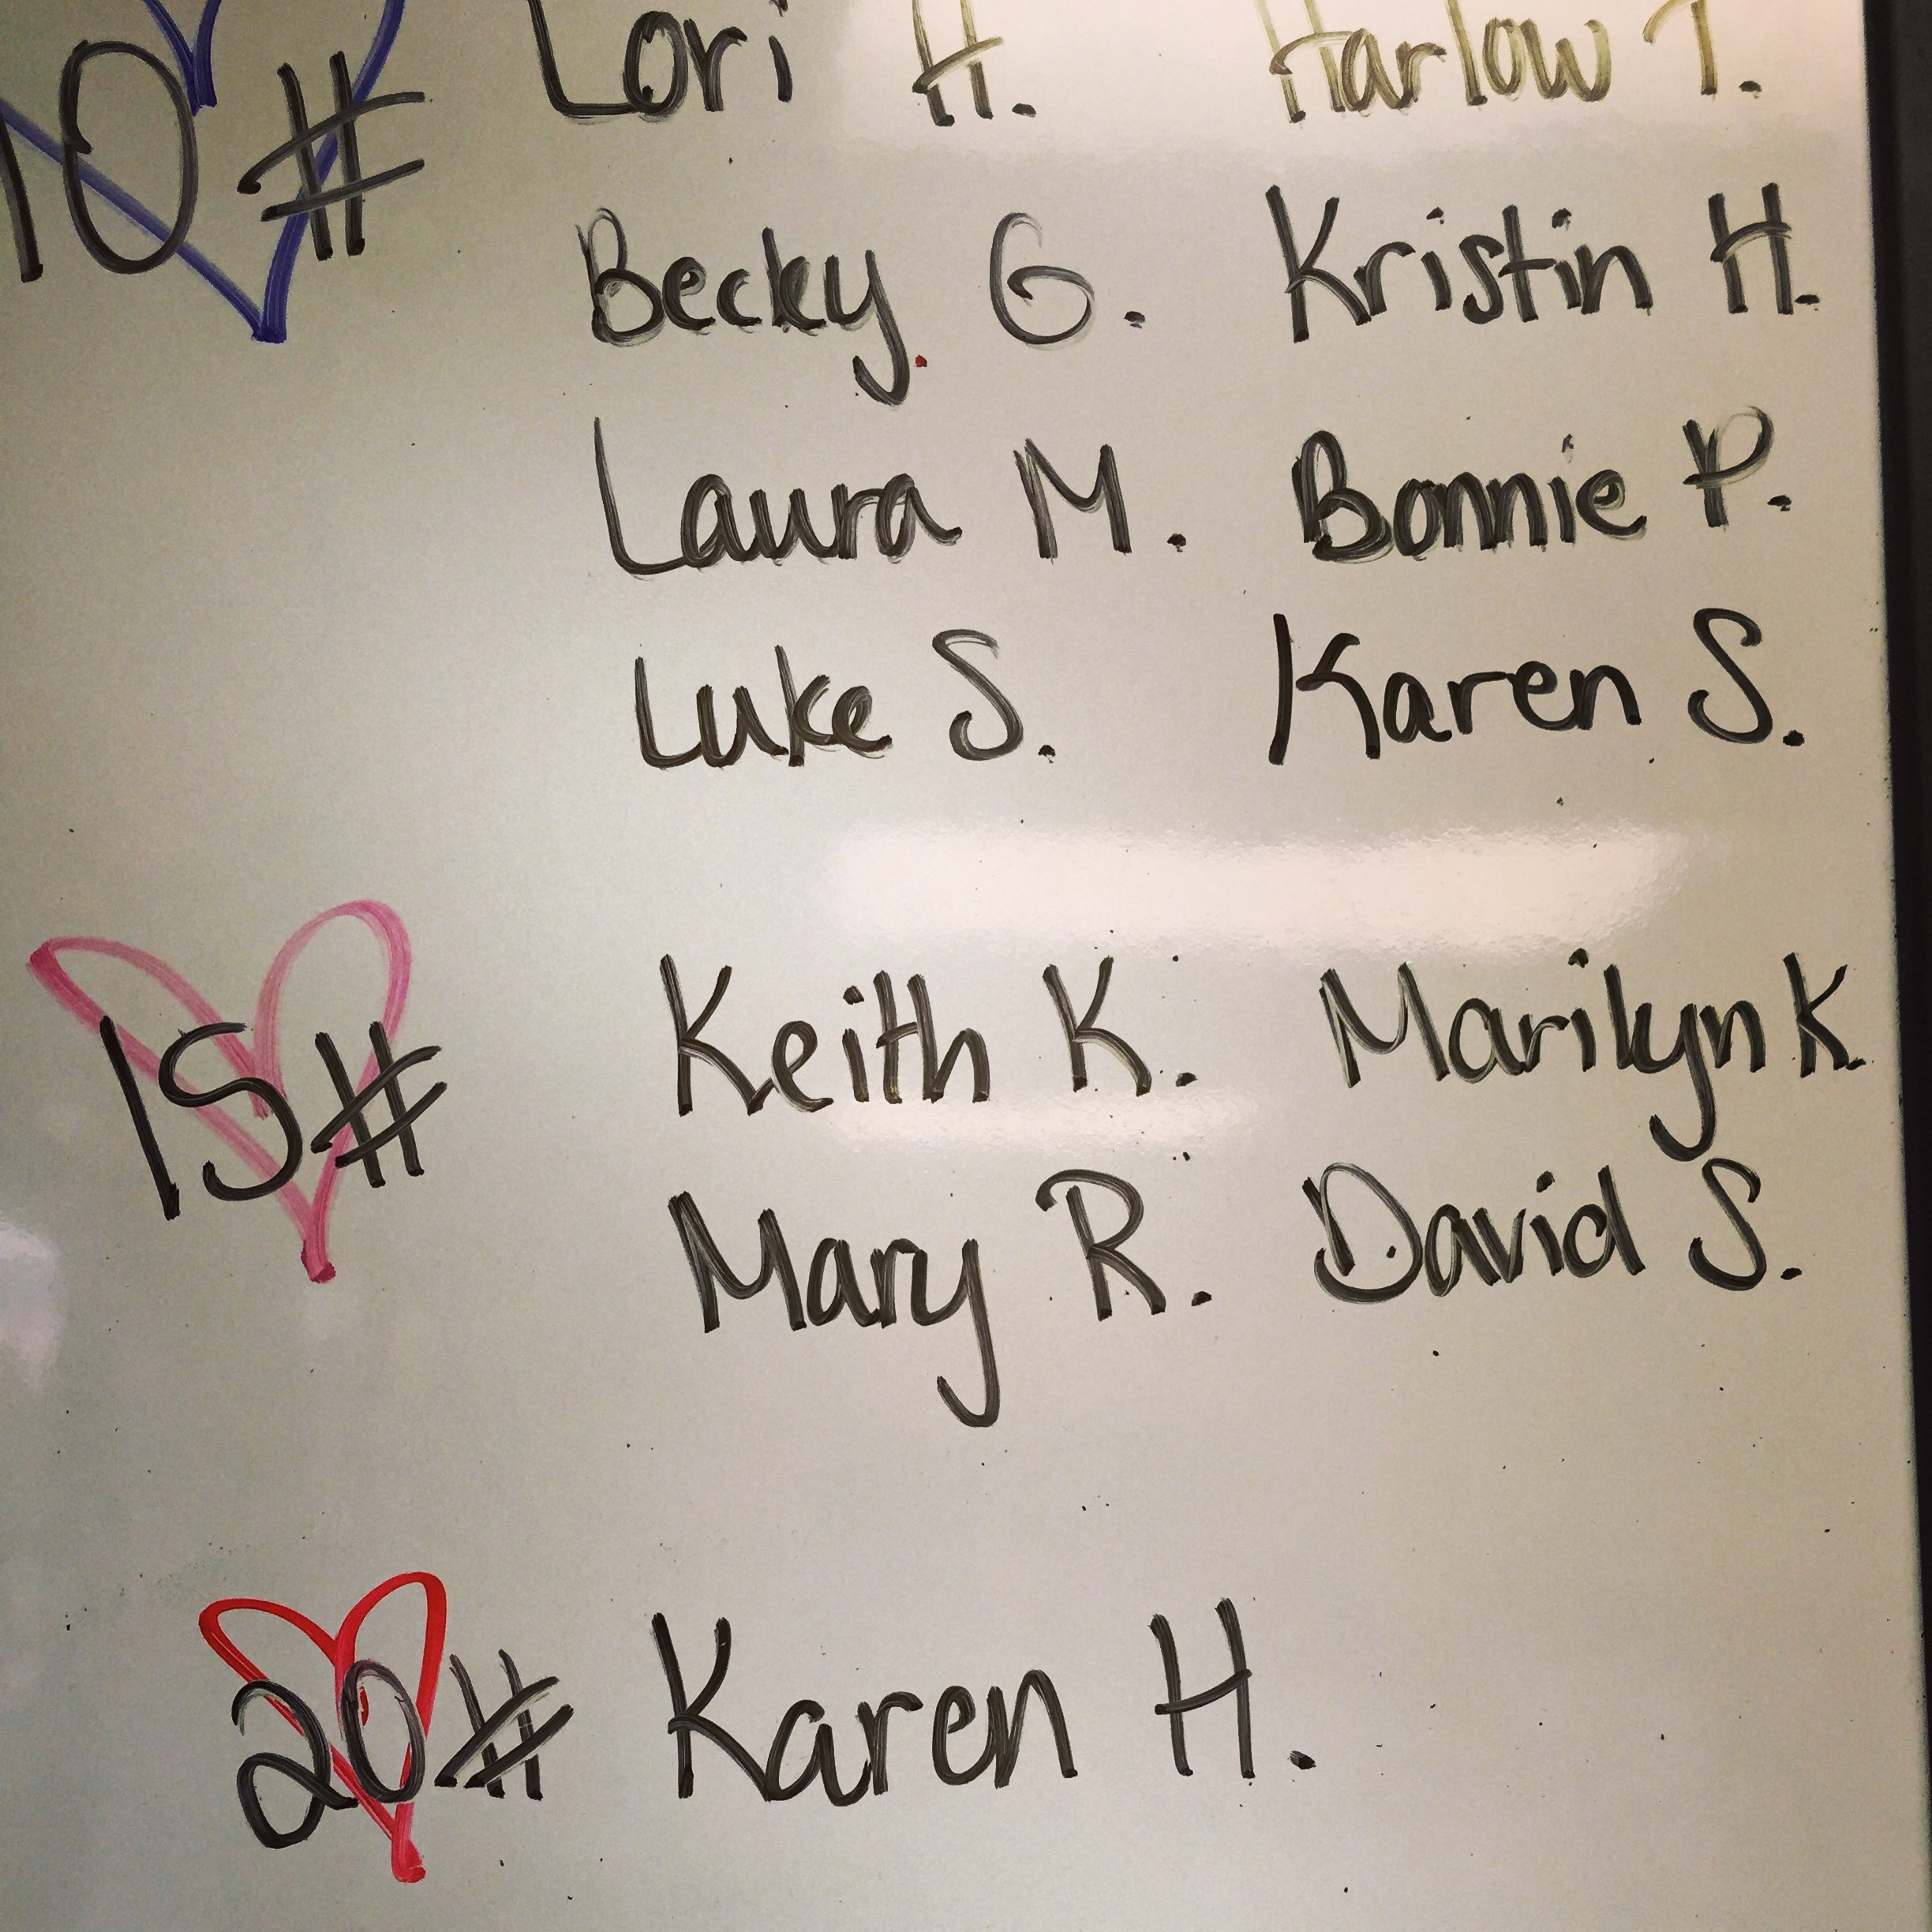 10# Lori H. Harlow T.
Becky G. Kristin H.
Laura M. Bonnie P.
Luke S. Karen S.
15# Keith K. Marilyn K.
Mary R. David S.
20# Karen H.